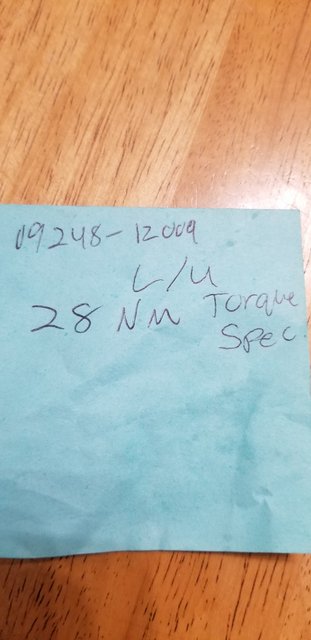 09248-12009
L/U
28 NM Torque
Spec